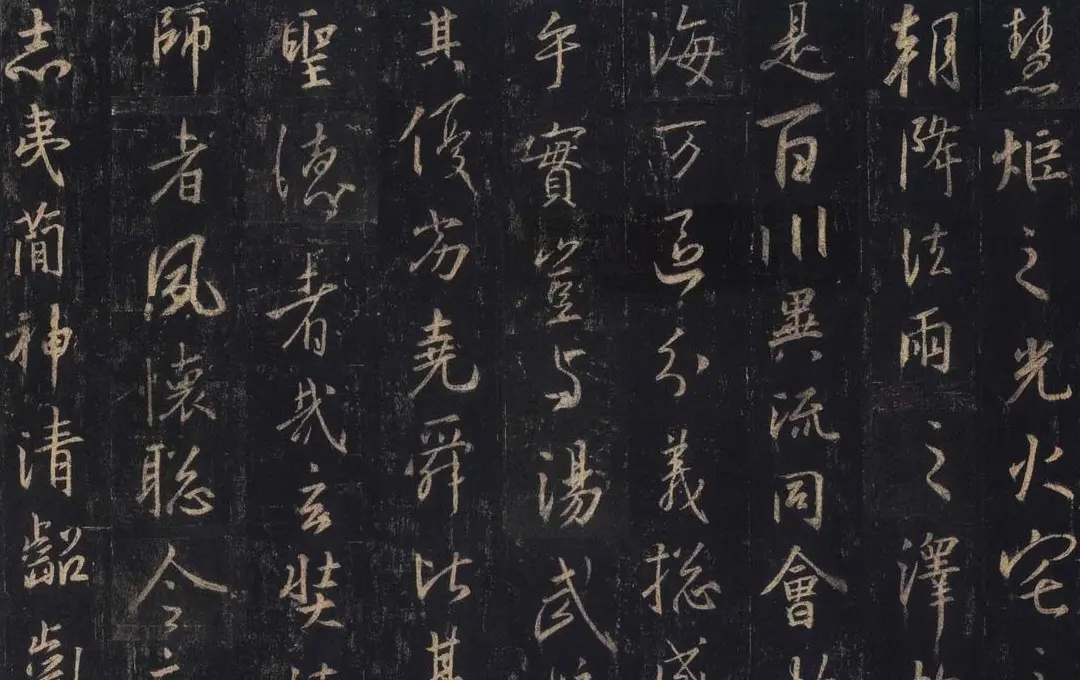 慧炬之光火宅之
朝降法雨之澤於
是百川異流同會於
海万區分義總成
乎實豈与湯武
其優劣堯舜比其
聖德者哉玄奘法
師者夙懷聡令立
志夷簡神清齠齔